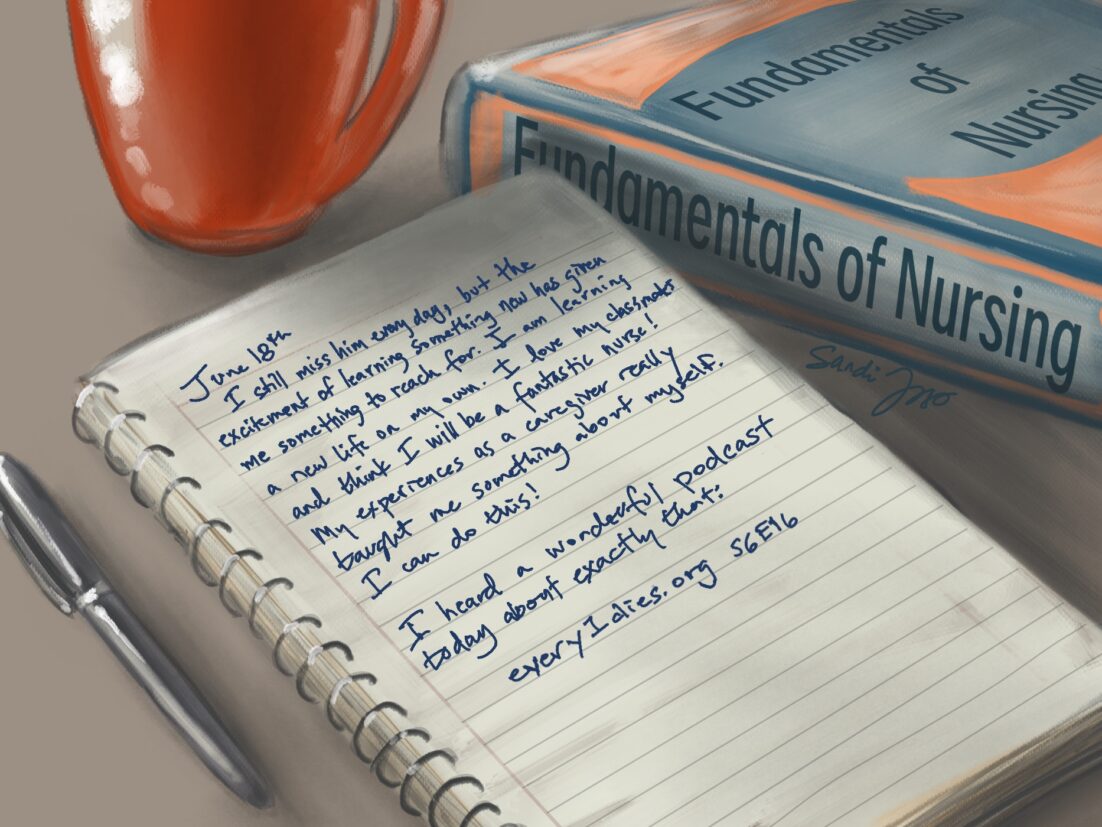 Fundamentals
of
Nursing
Fundamentals of Nursing
Sandi
June 18th
I still miss him every day, but the
excitement of learning something new has given
me something to reach for. I am learning
a new life on my own. I love my classmates
and think I will be a fantastic nurse!
My experiences as a caregiver really
taught me something about myself.
I can do this!
I heard a wonderful podcast
today about exactly that:
every1dies.org S6E16